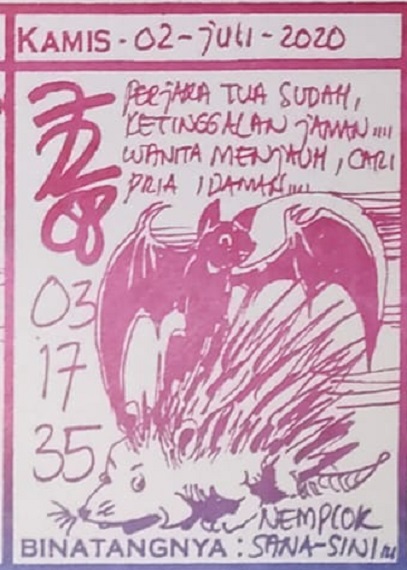 KAMIS - 02 - juli - 2020
PERjAKA TUA SUDAH,
KETINGGALAN jAMAN....
WANITA MENjAUH, CARI
PRIA IDAMAN....
08
03
17
35
NEMPLOK
BINATANGNYA : SANA-SINI...